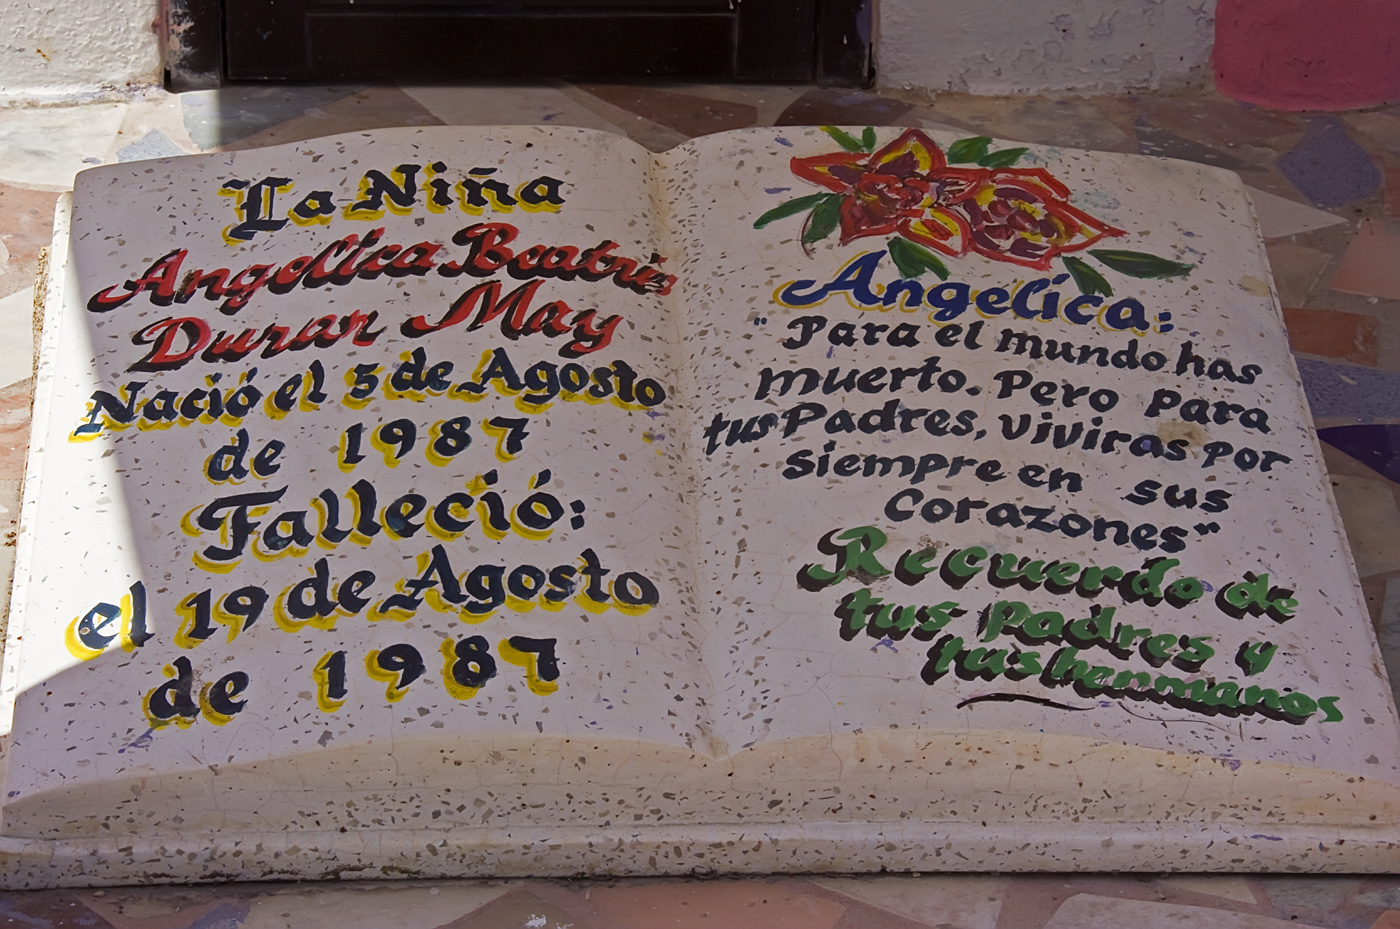 La Niña
Angelica Beatriz
Duran May
Nació el 5 de Agosto
de 1987
Falleció:
el 19 de Agosto
de 1987
Angelica:
"Para el mundo has
muerto. Pero para
tus Padres, viviras por
siempre en sus
Corazones"
Recuerdo de
tus padres y
tus hermanos